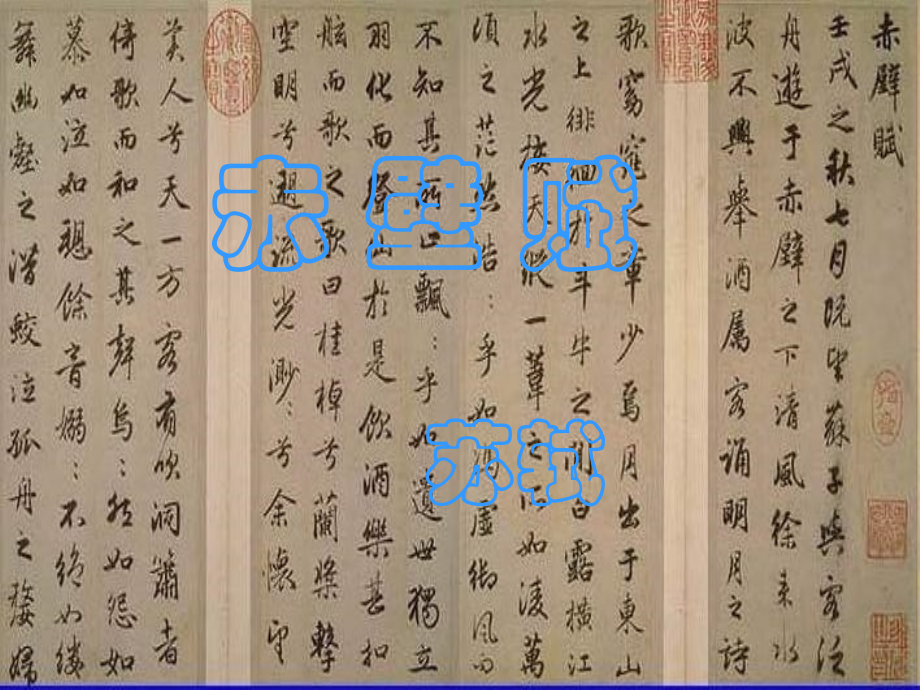 赤壁赋
苏轼
赤壁賦
壬戌之秋七月既望蘇子與客泛
舟遊于赤壁之下清風徐來水
波不興舉酒属客誦明月之詩
歌窈窕之章少焉月出于東山
之上徘徊於斗牛之間白露橫江
水光接天縱一葦之所如凌萬
頃之茫然浩〻乎如馮虛御風而
不知其所止飄〻乎如遺世獨立
羽化而登仙於是飲酒樂甚扣
舷而歌之歌曰桂棹兮蘭槳擊
空明兮遡流光渺〻兮余懷望
美人兮天一方客有吹洞簫者
倚歌而和之其聲烏〻然如怨如
慕如泣如聴餘音嫋〻不絕如縷
舞幽壑之潛蛟泣孤舟之嫠婦